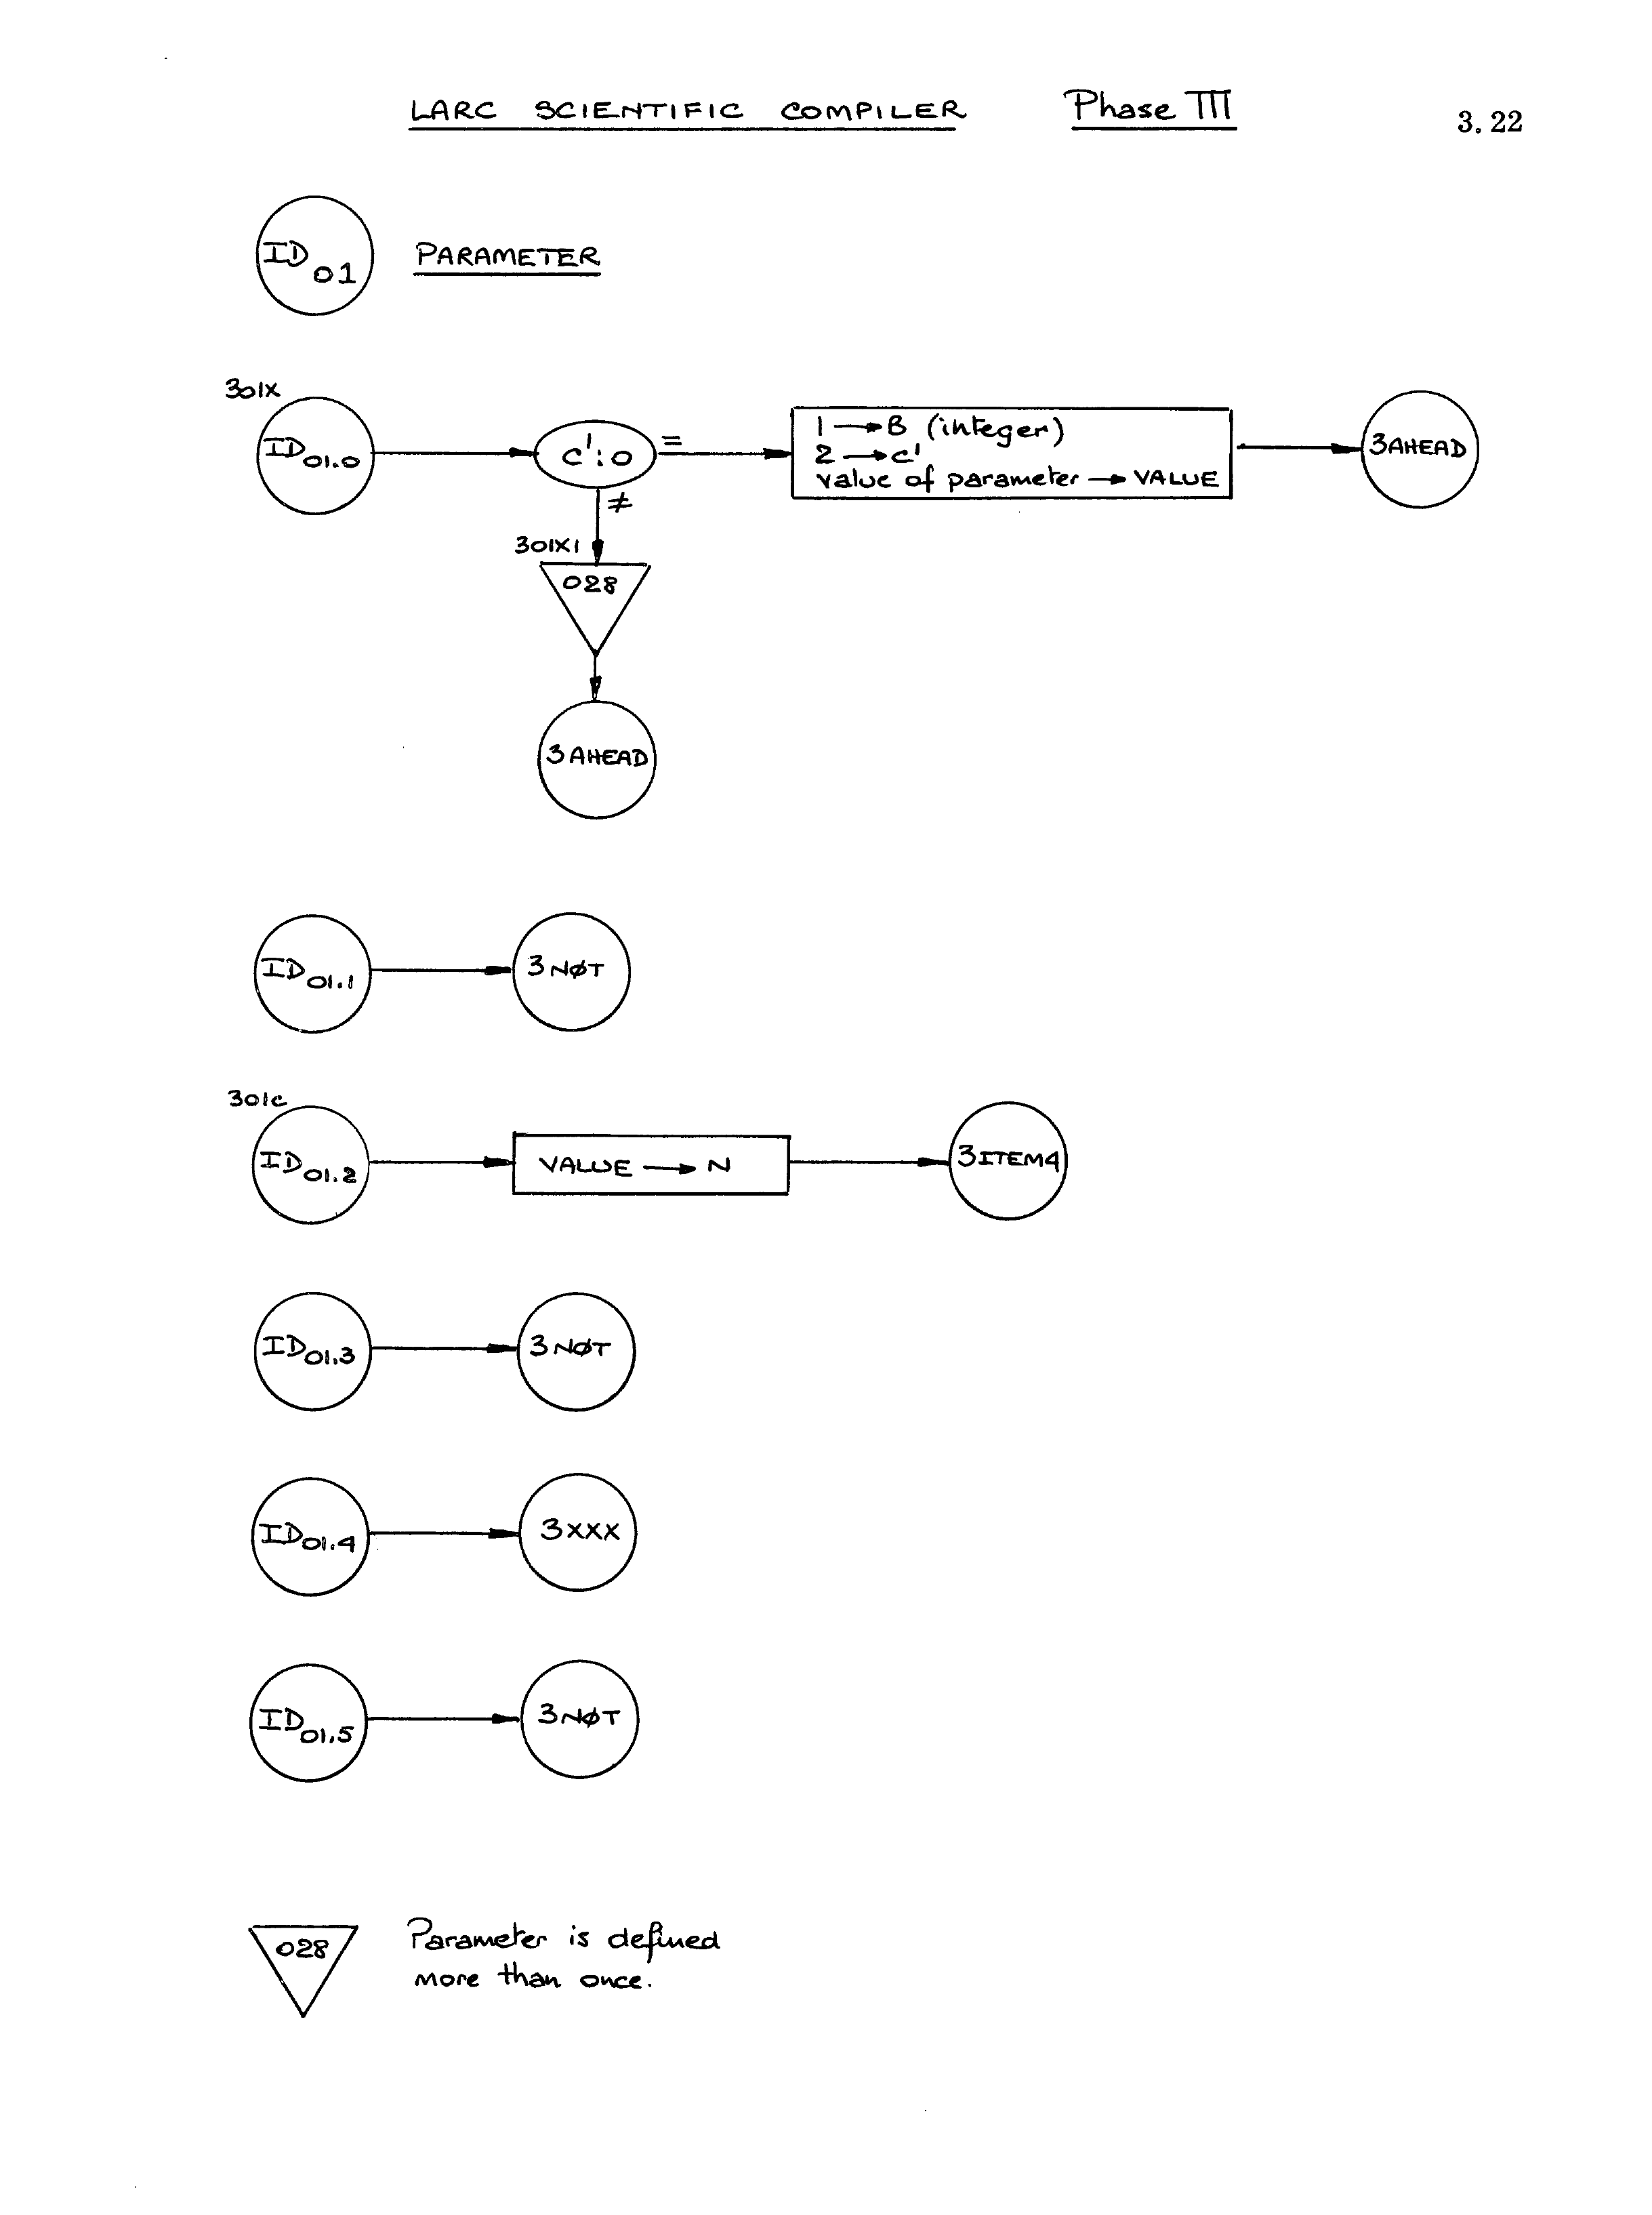 LARC SCIENTIFIC COMPILER Phase III 3.22
ID01 PARAMETER
301X
ID01.0 C':0 =
1 → B (integer)
2 → C'
value of parameter → VALUE
3AHEAD
≠
301X1
028
3AHEAD
ID01.1 3NØT
301C
ID01.2 VALUE → N 3ITEM4
ID01.3 3NØT
ID01.4 3XXX
ID01.5 3NØT
028 Parameter is defined
more than once.